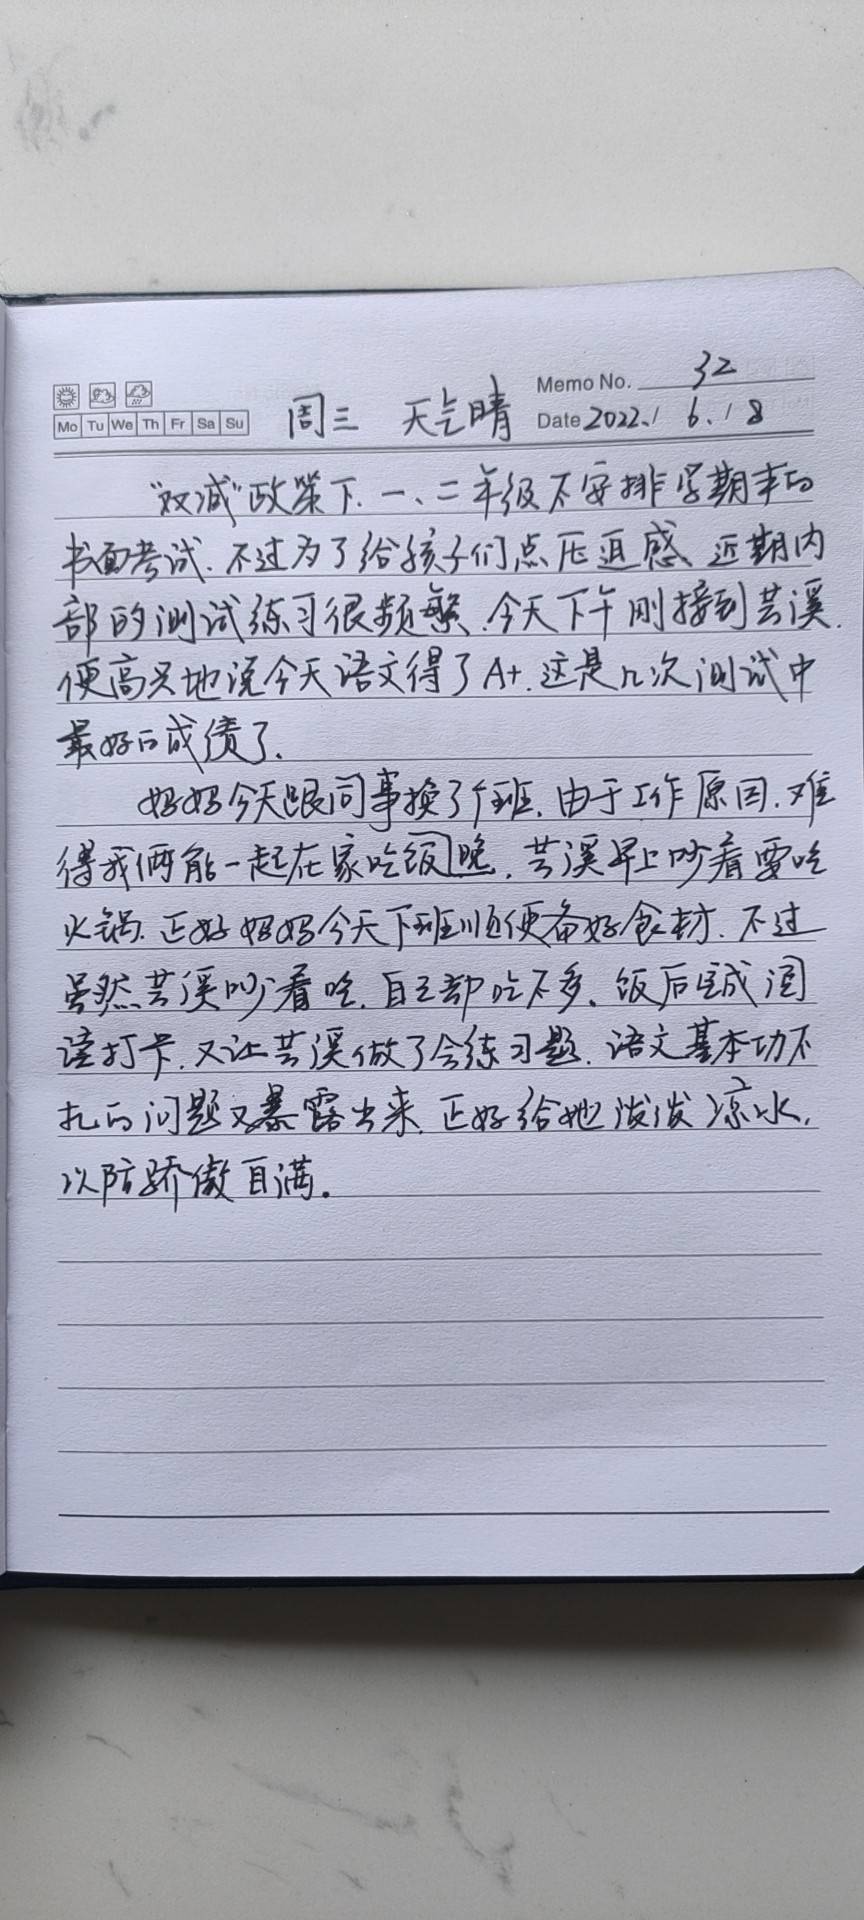 Memo No. 32
Mo Tu We Th Fr Sa Su
周三 天气晴
Date 2022. / 6. / 8
“双减”政策下.一、二年级不安排学期末的
书面考试.不过为了给孩子们点压迫感、近期内
部的测试练习很频繁.今天下午刚接到芸溪.
便高兴地说今天语文得了A+.这是几次测试中
最好的成绩了.
妈妈今天跟同事换了个班.由于工作原因.难
得我俩能一起在家吃饭晚.芸溪早上吵着要吃
火锅.正好妈妈今天下班顺便备好食材.不过
虽然芸溪吵着吃.自己却吃不多、饭后完成阅
读打卡.又让芸溪做了会练习题.语文基本功不
扎的问题又暴露出来.正好给她泼泼凉水,
以防骄傲自满.